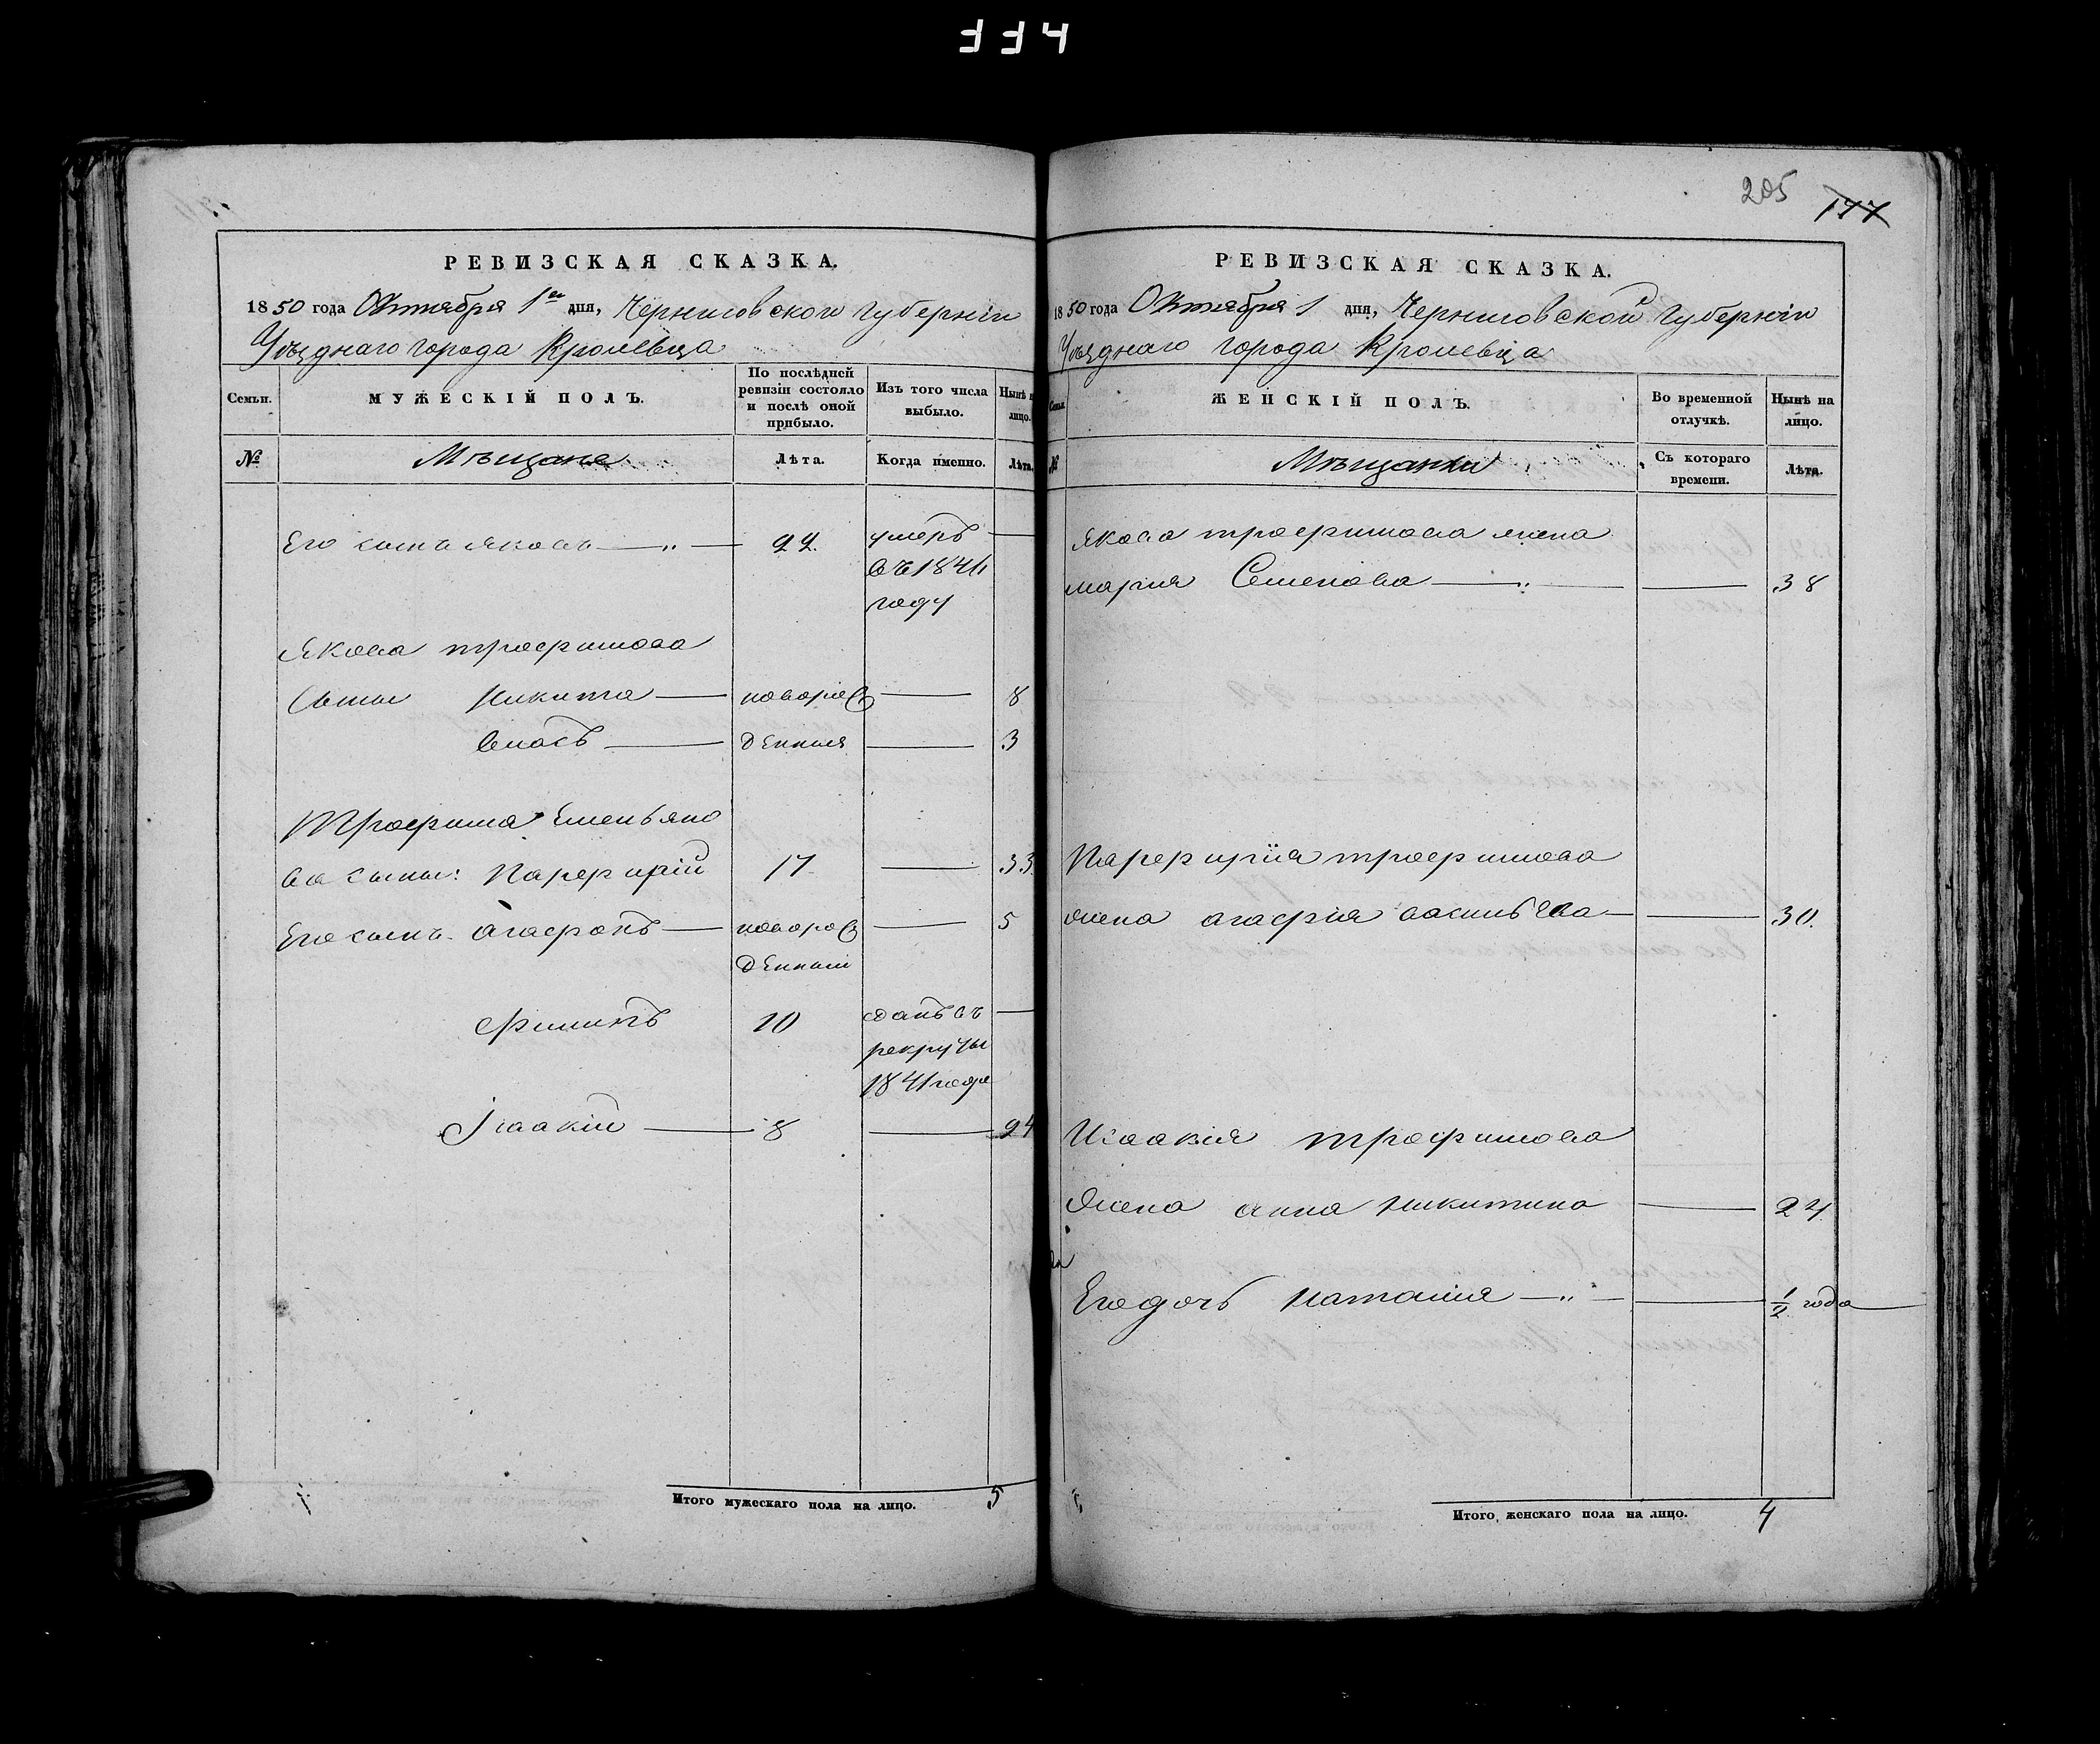 334
РЕВИЗСКАЯ СКАЗКА.
1850 года Октября 1го дня, Черниговской Губерніи
Уѣзднаго города Кролевца
Семьи.
МУЖЕСКІЙ ПОЛЪ.
По послѣдней ревизіи состояло и послѣ оной прибыло.
Изъ того числа выбыло.
Нынѣ на лицо.
№
Мѣщане
Лѣта.
Когда именно.
Лѣта.
Его сынъ Яковъ — " — 22 умеръ —
въ 1844
году
Якова Трофимова
Сыны Никита — новорож — 8
Власъ — денныя — 3
Трофима Емельяно
ва сыны: Парфирій 17 — 33
Его сынъ Агафонъ — новорож — 5
денный
Филипъ 10 Сданъ въ —
рекруты
1841 года
Ісаакій — 8 — 24
Итого мужескаго пола на лицо. 5
205 177
РЕВИЗСКАЯ СКАЗКА.
1850 года Октября 1 дня, Черниговской Губерніи
Уѣзднаго города Кролевца
Семьи.
ЖЕНСКІЙ ПОЛЪ.
Во временной отлучкѣ.
Нынѣ на лицо.
№
Мѣщанки
Съ котораго времени.
Лѣта.
Якова Трофимова жена
Мария Семенова — " — — 38
Парфирія Трофимова
жена Агафия Васильева — — 30.
Исаакія Трофимова
Жена Анна Никитина — 24
Его дочь Наталия — " — — 1/2 года
Итого женскаго пола на лицо. 4